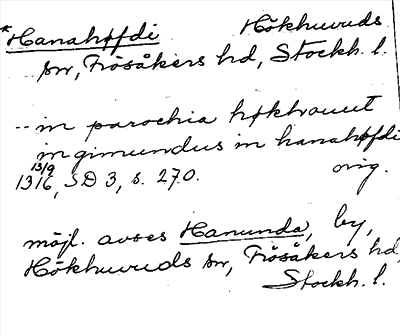 *Hanahøfdi Hökhuvuds
sn, Frösåkers hd, Stockh. l.
-- in parochia høkhwuut
ingimundus in hanahøfdi
13/9
1316, SD 3, s. 270. orig.
möjl. avses Hanunda, by,
Hökhuvuds sn, Frösåkers hd,
Stockh. l.